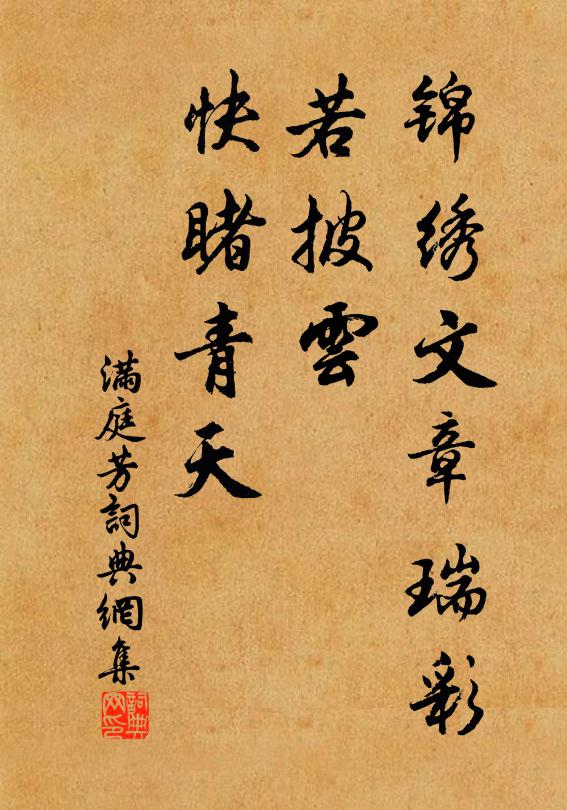 锦绣文章瑞彩
若披雲
快睹青天
满庭芳詞典網集
詞典网印